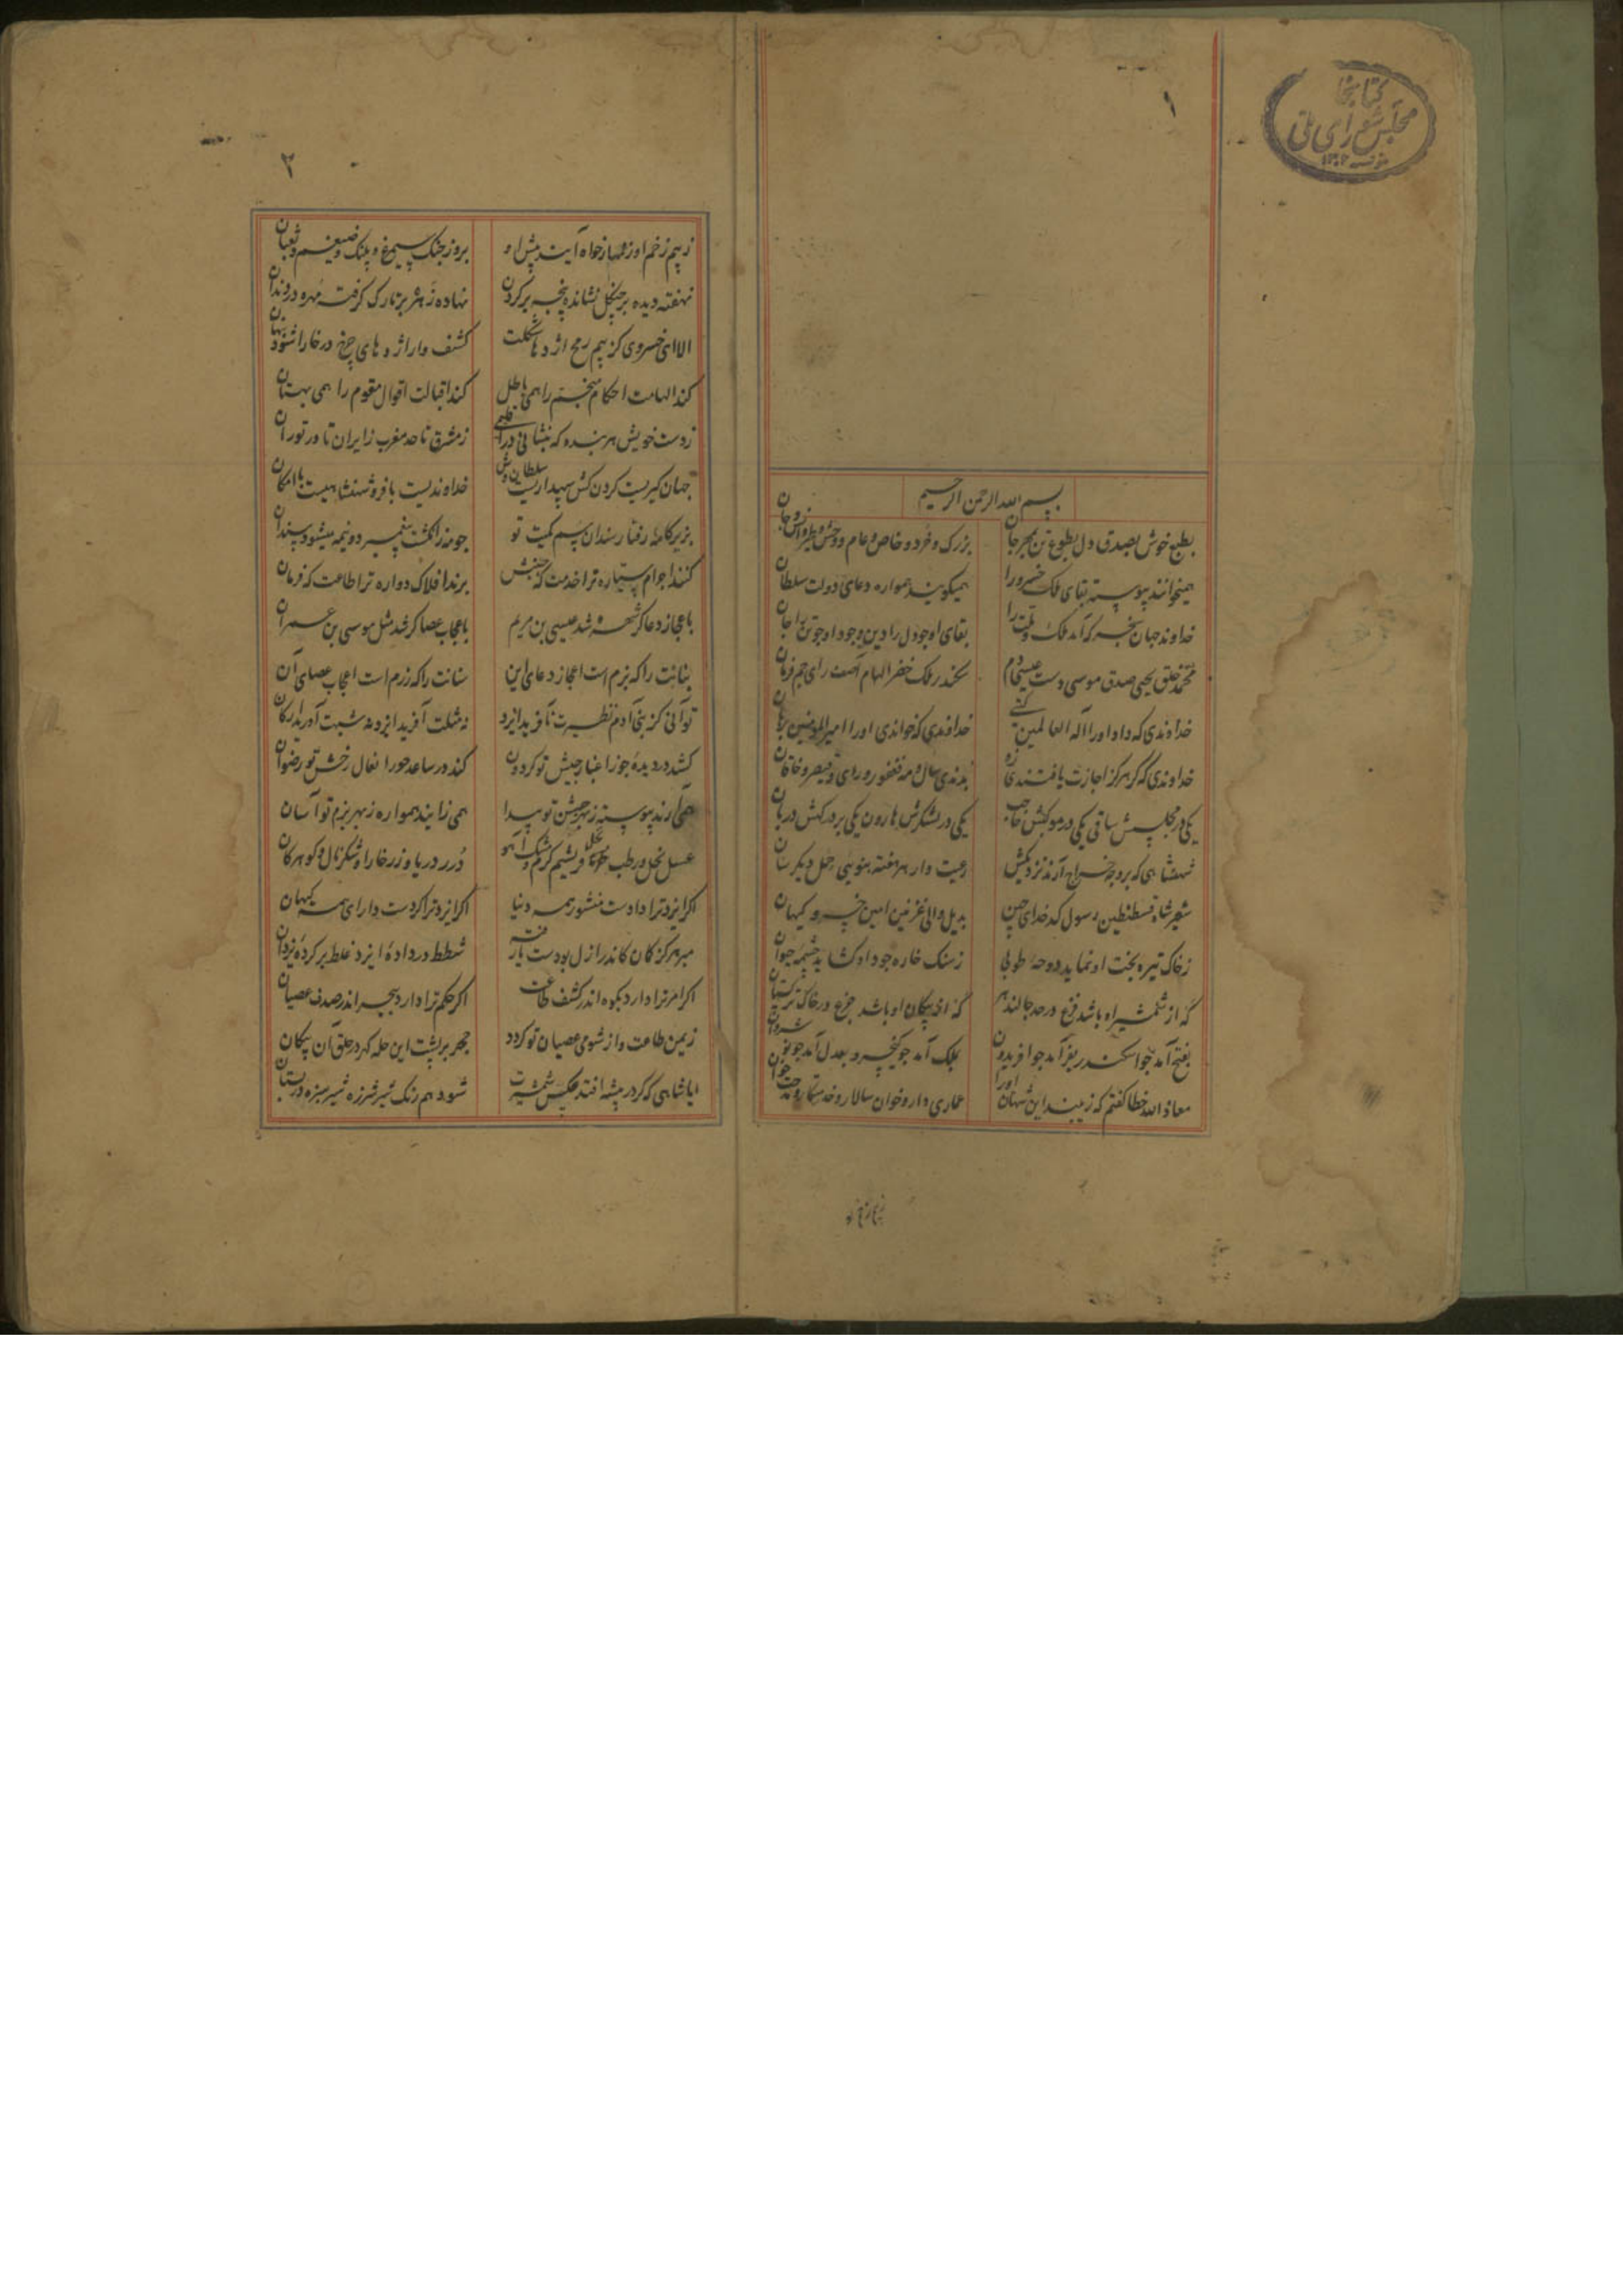 ۱
کتابخانه
مجلس شورای ملی
بسم الله الرحمن الرحیم
بطبع خوش بصدق دل بطوع تن بمهر جان بزرک و خرد و خاص و عام و وحش و طیر و انس و جان
همیخوانند پیوسته بقای ملک خسرو را همیکویند همواره دعای دولت سلطان
خداوند جهان سنجر که آمد ملک و ملت را بقای او چو دل را دین وجود او چو تن را جان
محمد خلق یحیی صدق موسی دست عیسی دم سکندر ملک خضر الهام آصف رای جم فرمان
خداوندی که داد او را اله العالمین خداوندی که خواندی او را امیرالمومنین
خداوندی که کر هرکز اجازت یافتندی زو بدندی سال و مه فغفور و رای و قیصر و خاقان
یکی در مجلسش ساقی یکی در موکبش حاجب یکی در لشکرش هارون یکی بر درکهش دربان
شهنشاهی که بر درجه خراج آرند نزدیکش رعیت وار هر هفته بنوبی حمل دیکر سان
شهر شاه قسطنطین رسول کدخدای چین بدیل والی غزنین امین خسرو کیهان
ز خاک تیره بخت او نماید دوحه طوبی ز سنک خاره جود او کشاید چشمه حیوان
که از شمشیر او باشد فزع در حد جالندهر که از پیکان او باشد جزع در خاک ترکستان
بفتح آمد چو اسکندر بفر آمد چو افریدون بملک آمد چو کیخسرو بعدل آمد چو نوشروان
معاذ الله خطا کفتم که زیبند این شهان او را عماری دار و خوان سالار و خدمتکار و
۲
ز بیم زخم او زنهار خواه آیند پیش او بروز جنک سیمرغ و پلنک و ضیغم و ثعبان
نهفته دیده بر چنکل نشانده پنجه بر کردن نهاده زهره بر تارک کرفته مهره در دندان
الا ای خسروی کز بیم رمح اژدها شکلت کشف وار اژدهای چرخ در خارا شود پنهان
کند الهامت احکام منجم را همی باطل کند اقبالت اقوال مقوم را همی بهتان
ز دست خویش هر بنده که بنشانی در اقلیمی ز مشرق تا حد مغرب ز ایران تا در توران
جهان کیریست کردن کش سپهداریست سلطان وش خداوندیست با فر و شهنشاهیست با امکان
بزیر کامه رفتار سندان سم کمیت تو چو مه ز انکشت پیغمبر دو نیمه میشود سندان
کنند اجرام سیاره ترا خدمت که جنبش برند افلاک دواره ترا طاعت که فرمان
باعجاز دعا کر شهره شد عیسی بن مریم باعجاب عصا کر شد مثل موسی بن عمران
بنانت را که بزم است اعجاز دعای این سنانت را که رزم است اعجاب عصای آن
تو آنی کز بنی آدم نظیرت نافرید ایزد نه شکلت آفرید ایزد نه شبهت آورید ارکان
کشد در دیده جوزا غبار جیش تو کردون کند در ساعد حورا نعال رخش تو رضوان
همی آرند پیوسته ز بهر جشن تو پیدا همی زایند همواره ز بهر بزم تو آسان
عسل نحل و رطب خرما و بریشم کرم و مشک آهو درر دریا و زر خارا و شکر نال و کوهر کان
اکر ایزد ترا دادست منشور همه دنیا اکر ایزد ترا کردست دارای همه کیهان
مبر هرکز کمان کاندر ازل بودست شطط در داده ایزد غلط بر کرده یزدان
اکر امر ترا دارد بکوه اندر کشف طاعت اکر حکم ترا دارد ببحر اندر صدف عصیان
ز یمن طاعت و از شومی عصیان تو کردد کهر بر پشت این حله کهر در حلق آن پیکان
ایا شاهی که کر در بیشه افتد عکس شمشیرت شود هم رنک شیر شرزه شیر سبزه در بستان